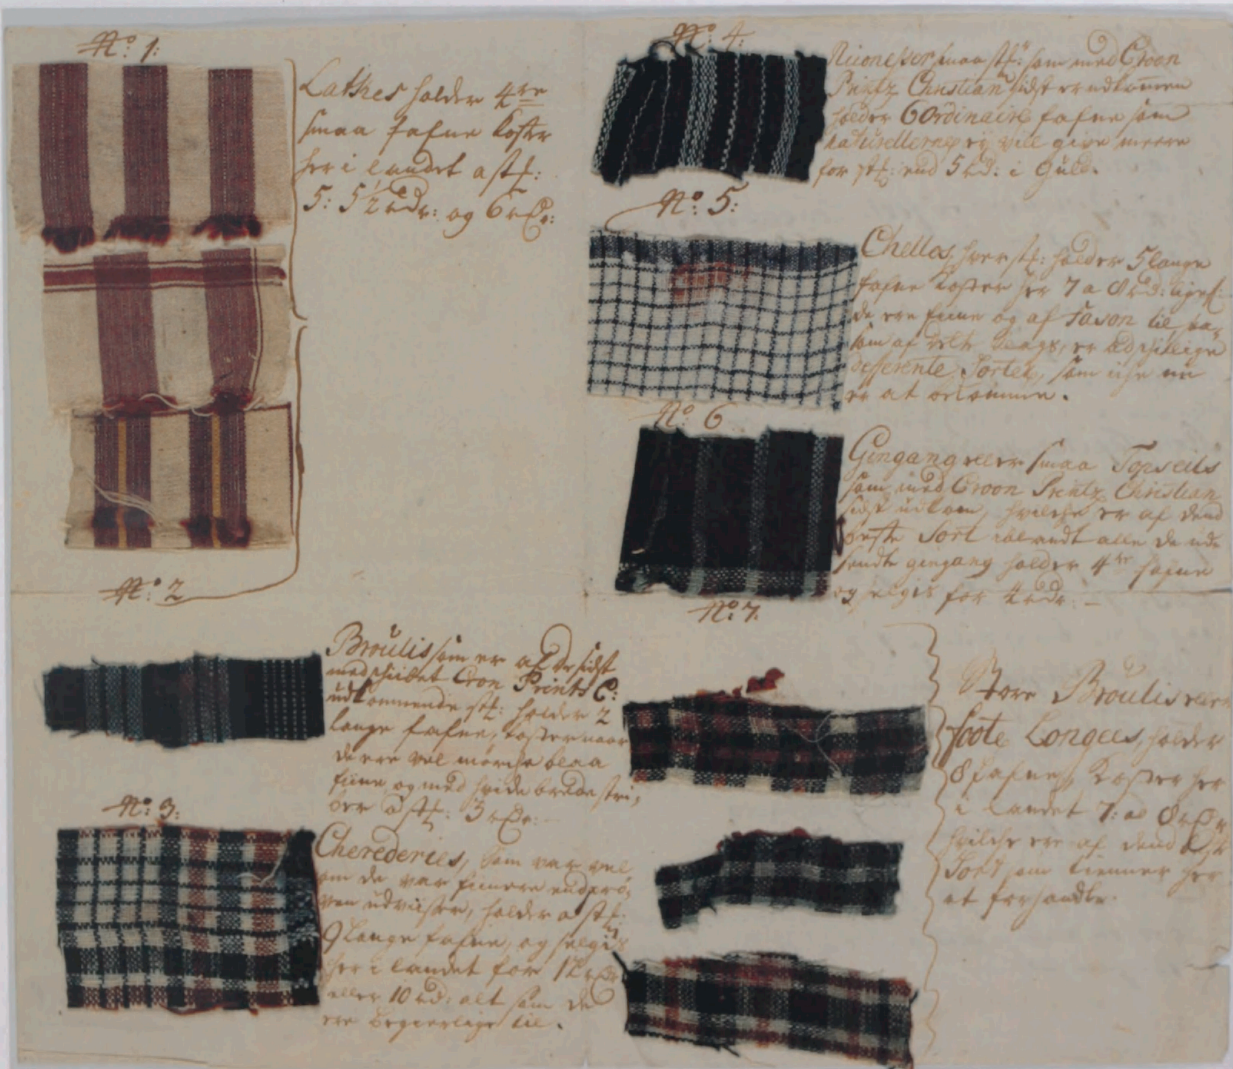 No: 1:
Lathes holder 4re
smaa fafne koster
her i landet a st:
5: 5½ rdr: og 6 rdr:
No: 2
Broulis som er af de sidst
med skibet Cron Printz C:
udkommende st: holder 2
lange fafne, koster naar
de ere vel mørcke blaa
fiine og med hvide brede stri,
ber a st: 3 rdr:
No: 3:
Cherederies, som var vel
om de var finere end prø,
ven udviiser, holder a st:
9 lange fafne, og selgis
her i landet for 12
eller 10 rd: alt som de
ere begierlige til.
No: 4:
smaa st: som med Croon
Printz Christian sidst er udkommen
holder 6 Ordinaire fafne som
ey vill give meere
for st: end 5 rd: i Guld.
No: 5:
Chellas, hver st: holder 5 lange
fafne koster her 7 a 8 rd:
de ere fiine og af Fason til,
som af
differente Sorter, som
er at bekomme.
No: 6
Gingang smaa Topseils
som med Croon Printz Christian
sidst udkom, hvilcke er af dend
beste Sort iblandt alle de ud,
sendte gingang holder 4re fafne
og selgis for 4 rdr:
No: 7:
Store Broulis
foote Longees, holder
8 fafne, koster her
i landet 7: a 8 rdr
hvilche ere af dend beste
Sort som tienner her
at forhandle.